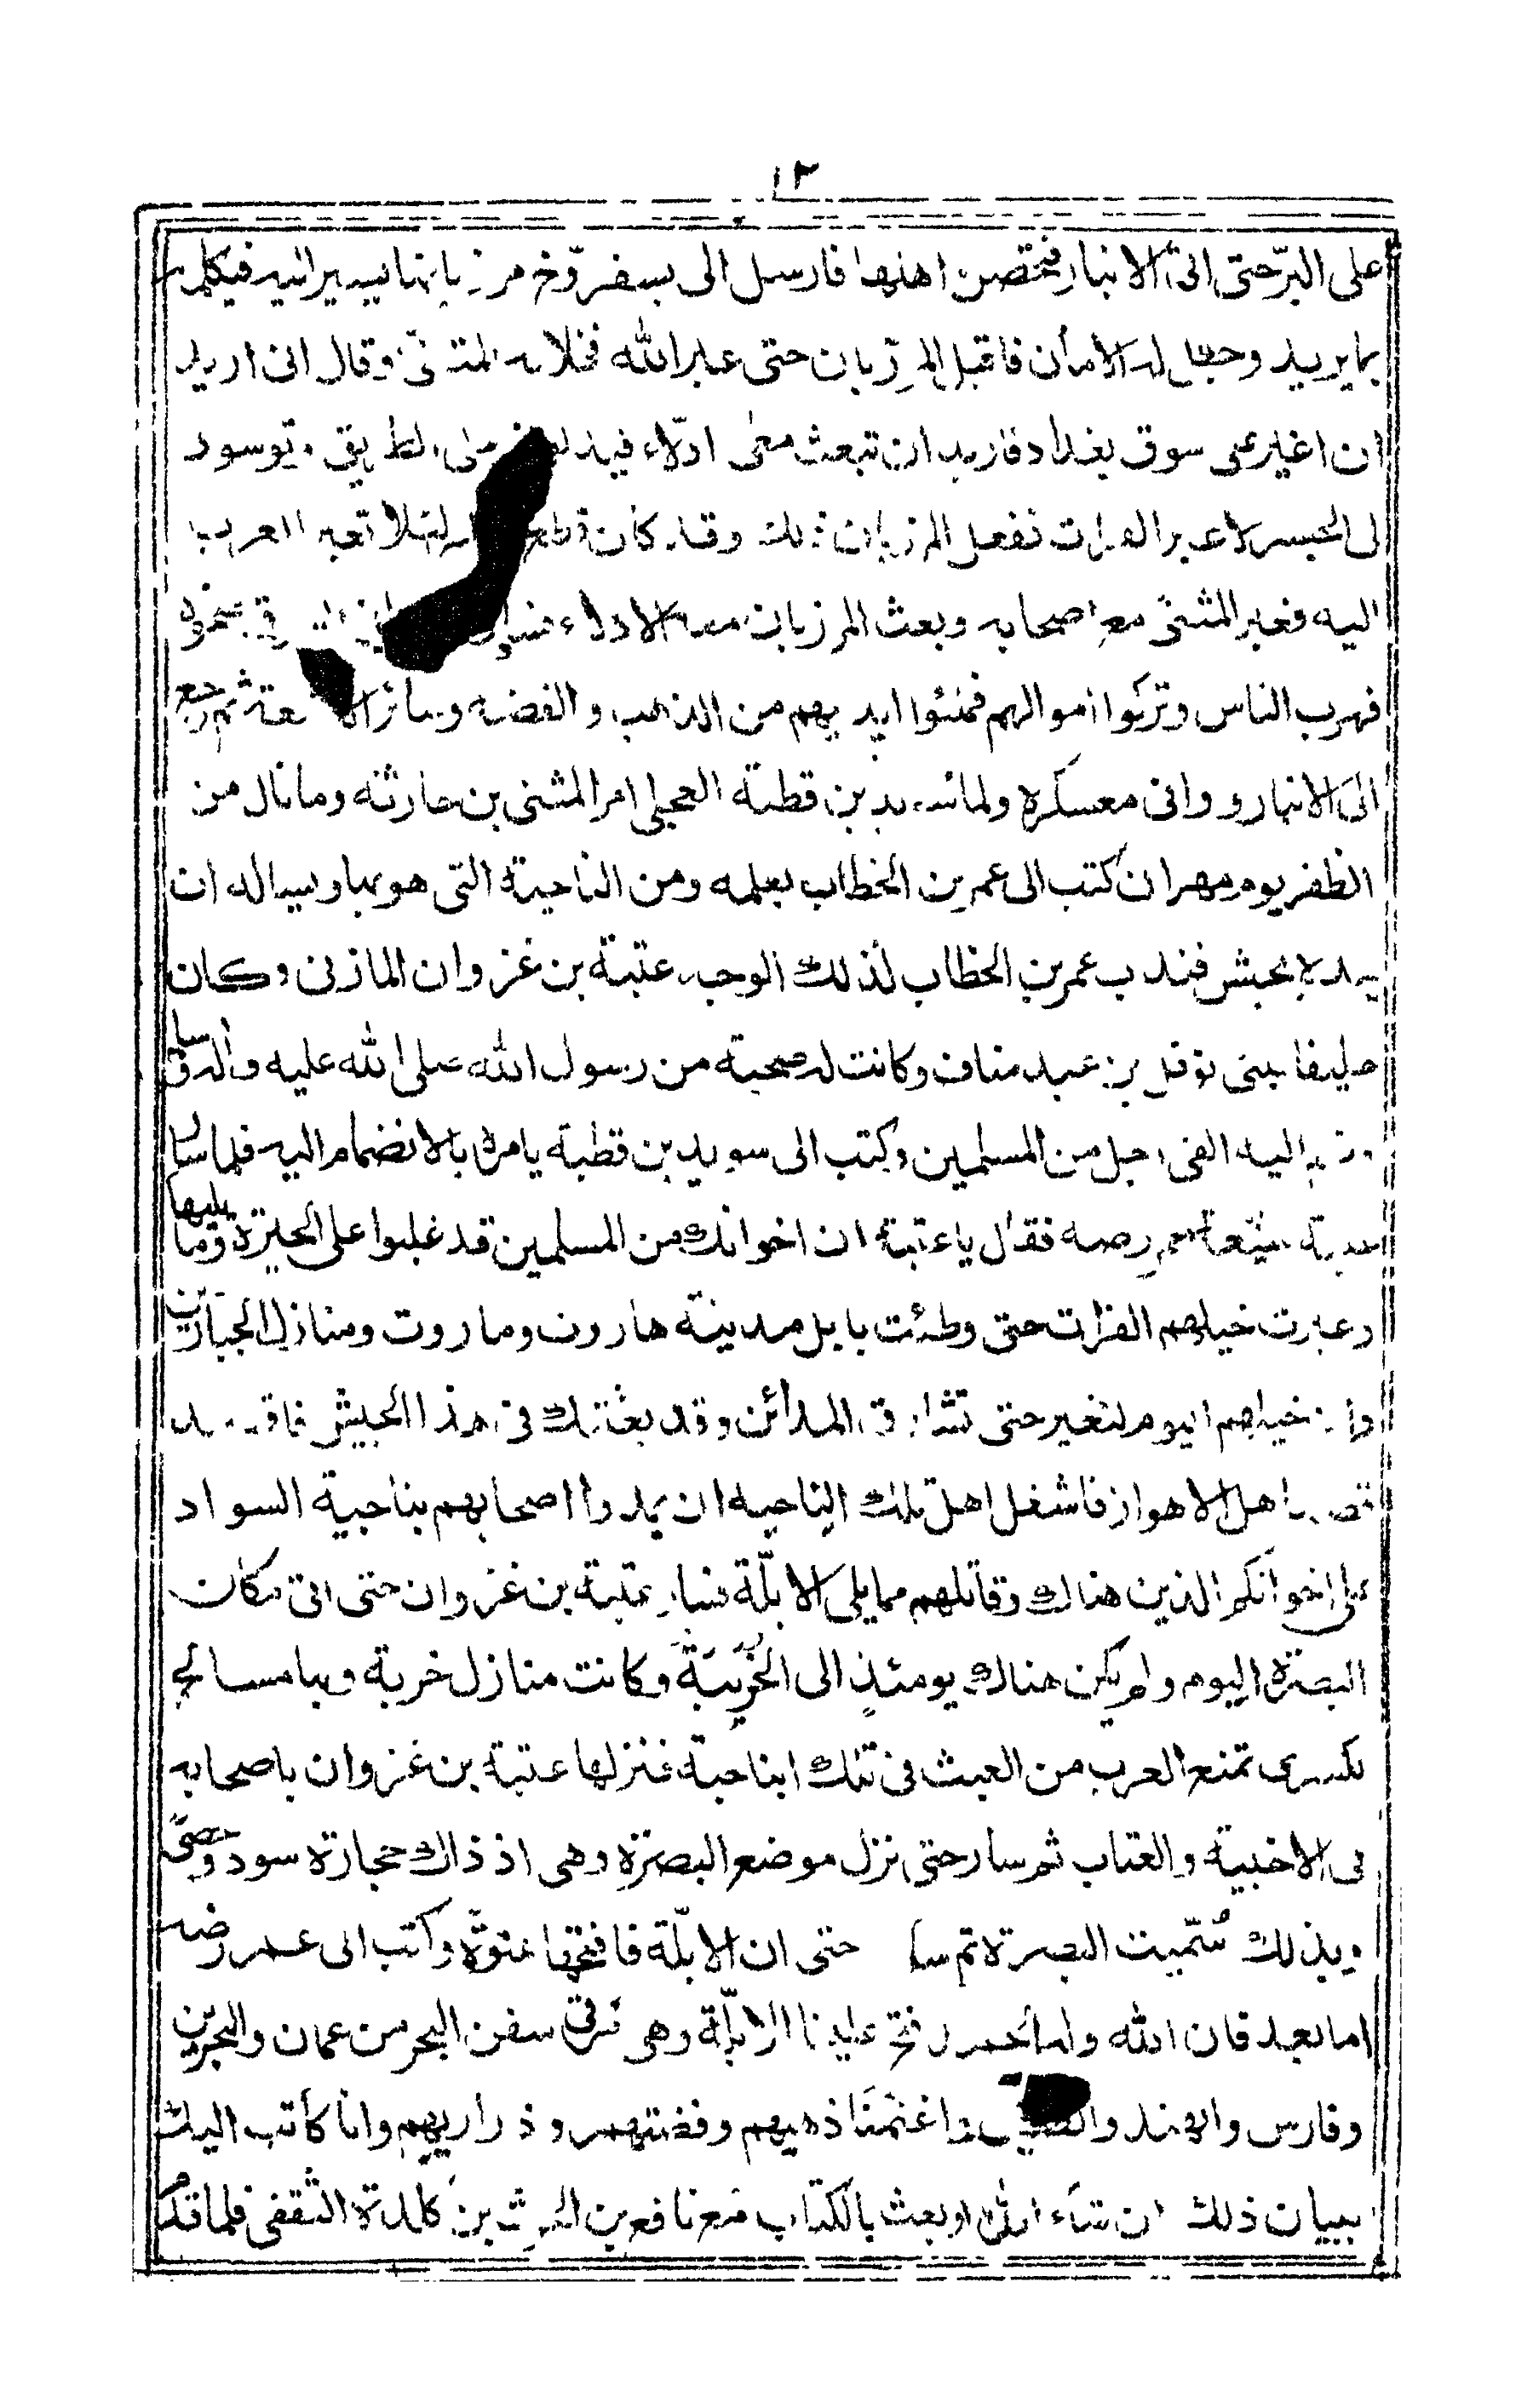 ١٢
على البرّ حتى اتى الانبار فتحصن اهلها فارسل الى بسفروخ مرزبانها يسير اليه فيكلمه
بما يريد وجعل له الامان فاقبل المرزبان حتى عبر اليه فخلا به المثنى وقال انى اريد
ان اغير على سوق بغداد فاريد ان تبعث معى ادلاء على الطريق وتسوى
لى الجسر لاعبر الفرات ففعل المرزبان ذلك وقد كان قطع لئلا تعبر العرب
اليه فعبر المثنى مع اصحابه وبعث المرزبان معه الادلاء
فهرب الناس وتركوا اموالهم فملئوا ايديهم من الذهب والفضة وسائر ثم رجع
الى الانبار ووافى معسكره ولما سويد بن قطبة العجلى امر المثنى بن حارثة وما نال من
الظفر يوم مهران كتب الى عمر بن الخطاب يعلمه ومن الناحية التى هو بها ويساله ان
يمده بجيش فندب عمر بن الخطاب لذلك الوجه عتبة بن غزوان المازنى وكان
حليفا لبنى نوفل بن عبد مناف وكانت له صحبة من رسول الله صلى الله عليه وآله وسلم
اليه الفى رجل من المسلمين وكتب الى سويد بن قطبة يامره بالانضمام اليه فلما سار
عتبة شيعه عمر رضه فقال يا عتبة ان اخوانك من المسلمين قد غلبوا على الحيرة وما يليها
وعبرت خيلهم الفرات حتى وطئت بابل مدينة هاروت وماروت ومنازل الجبارين
وان خيلهم اليوم لتغير حتى تشارف المدائن وقد بعثتك فى هذا الجيش فاقصد
قصد اهل الاهواز فاشغل اهل تلك الناحية ان يمدوا اصحابهم بناحية السواد
على اخوانكم الذين هناك وقاتلهم مما يلى الابلّة فسار عتبة بن غزوان حتى اتى مكان
البصرة اليوم ولم يكن هناك يومئذ الى الخُرَيبَة وكانت منازل خربة وبها مسالح
لكسرى تمنع العرب من العبث فى تلك الناحية فنزلها عتبة بن غزوان باصحابه
فى الاخبية والقباب ثم سار حتى نزل موضع البصرة وهى اذ ذاك حجارة سود وحصى
وبذلك سُمّيت البصرة ثم سار حتى اتى الابلّة فافتتحها عنوة وكتب الى عمر رضه
اما بعد فان الله وله الحمد فتح علينا الابلّة وهى مرقى سفن البحر من عمان والبحرين
وفارس والهند والصين واغنمنا ذهبهم وفضتهم وذراريهم وانا كاتب اليك
ببيان ذلك ان شاء الله وبعث بالكتاب مع نافع بن الحرث بن كلدة الثقفى فلما قدم